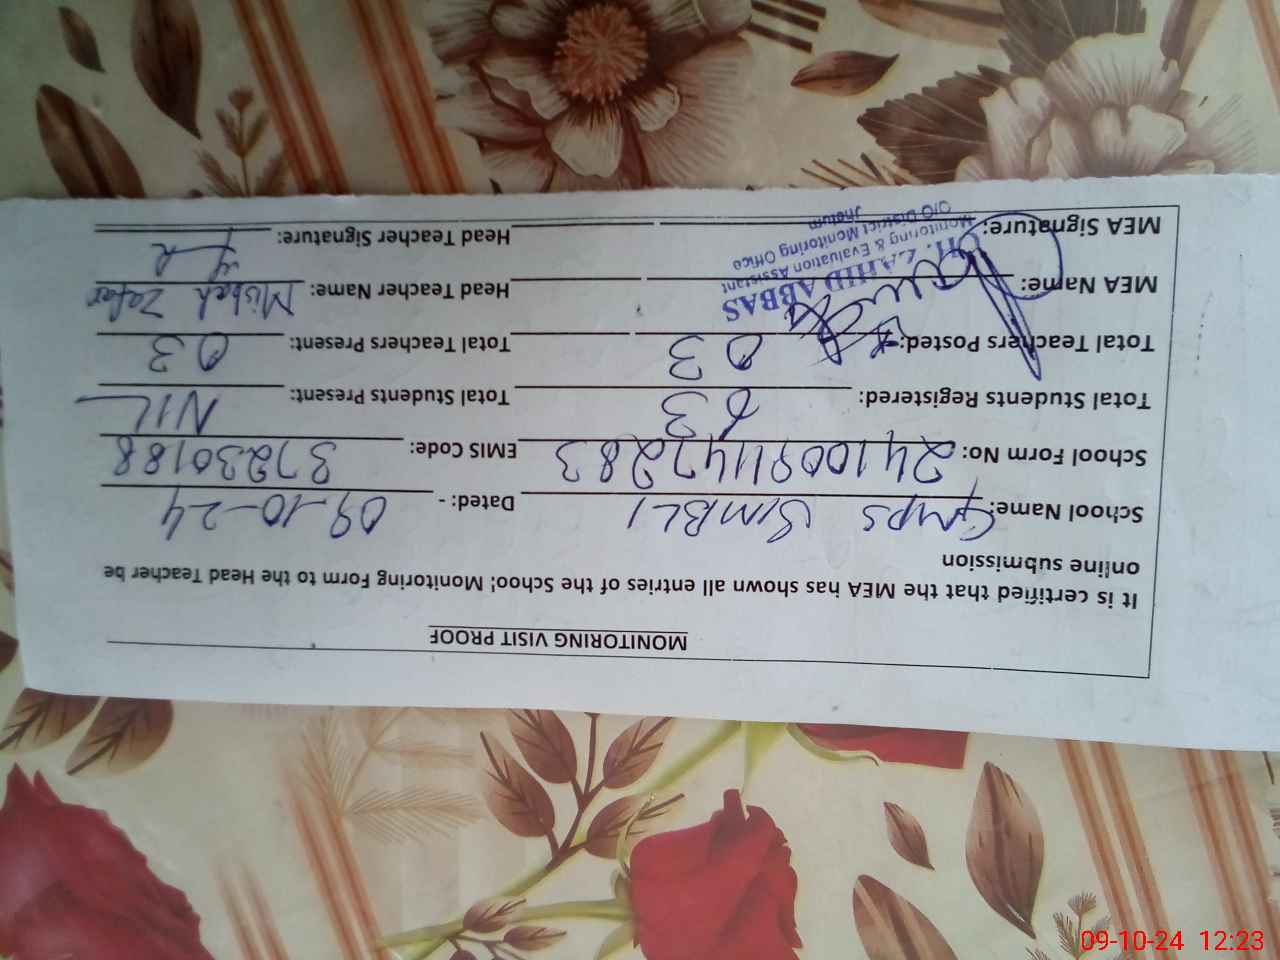 MONITORING VISIT PROOF
It is certified that the MEA has shown all entries of the School Monitoring Form to the Head Teacher be
online submission
School Name: GMPS SIMBLI Dated: - 09-10-24
School Form No: 241009114 7283 EMIS Code: 37230188
Total Students Registered: 63 Total Students Present: NIL
Total Teachers Posted: 03 Total Teachers Present: 03
MEA Name: Head Teacher Name: Misbah Zafar
MEA Signature: Head Teacher Signature:
CH. ZAHID ABBAS
Monitoring & Evaluation Assistant
O/O District Monitoring Office
Jhelum
09-10-24 12:23